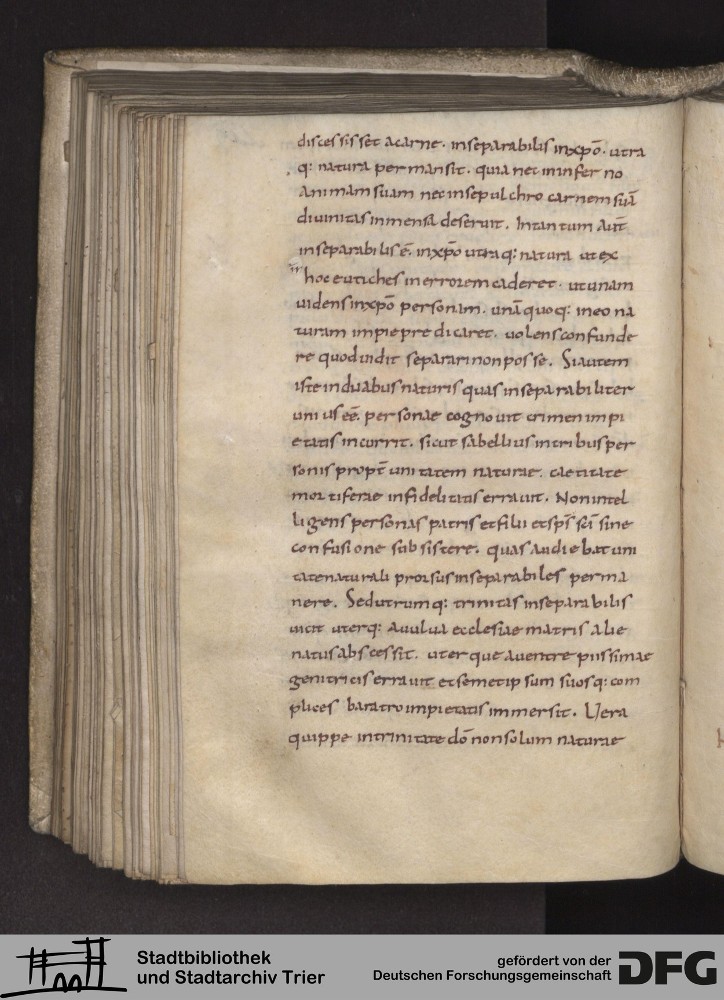 discessisset acarne. inseparabilis inxpō. utra
q: natura permansit. quia nec ininferno
animam suam necinsepulchro carnem suā
divinitas inmensa deseruit. Intantum aūt
inseparabilis ē. inxpō utraq: natura ut ex
hoc eutiches in errorem caderet. ut unam
videns inxpō personam. unāquoq: ineo na
turam impie predicaret. volens confunde
re quod vidit separari non posse. Si autem
iste induabus naturis quas inseparabiliter
unius eē personae cognovit crimen impi
etatis incurrit. sicut sabellius intribus per
sonis propt̄ unitatem naturae. caecitate
mortiferae infidelitatis erravit. Non intel
ligens personas patris et filii et sp̄s sc̄i sine
confusione subsistere. quas audiebat uni
tate naturali prorsus inseparabiles perma
nere. Sed utrumq: trinitas inseparabilis
vicit uterq: avulva ecclesiae matris alie
natus abscessit. uterque aventre piissimae
genitricis erravit et semetipsum suosq: com
plices baratro impietatis immersit. Vera
quippe intrinitate dō non solum naturae
Stadtbibliothek
und Stadtarchiv Trier
gefördert von der
Deutschen Forschungsgemeinschaft
DFG